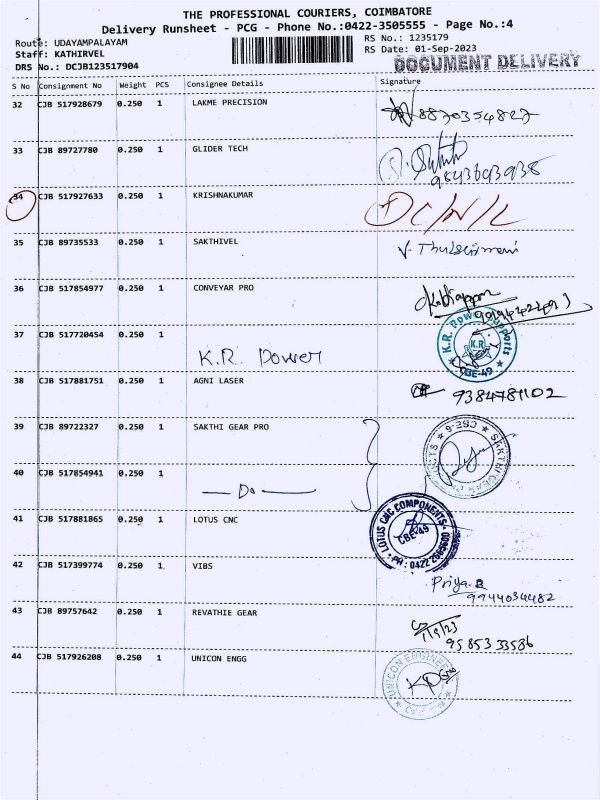 THE PROFESSIONAL COURIERS, COIMBATORE
Delivery Runsheet - PCG - Phone No.:0422-3505555 - Page No.:4
Route: UDAYAMPALAYAM
RS No.: 1235179
Staff: KATHIRVEL
RS Date: 01-Sep-2023
DRS No.: DCJB123517904
DOCUMENT DELIVERY
S No Consignment No Weight PCS Consignee Details Signature
32 CJB 517928679 0.250 1 LAKME PRECISION 8870354827
33 CJB 89727780 0.250 1 GLIDER TECH
34 CJB 517927633 0.250 1 KRISHNAKUMAR
35 CJB 89735533 0.250 1 SAKTHIVEL
36 CJB 517854977 0.250 1 CONVEYAR PRO
37 CJB 517720454 0.250 1 K.R. Power K.R. Power Supports K.R CBE-49
38 CJB 517881751 0.250 1 AGNI LASER 9384781102
39 CJB 89722327 0.250 1 SAKTHI GEAR PRO SAKTHI GEAR PRODUCTS CBE-6
40 CJB 517854941 0.250 1 — Do —
41 CJB 517881865 0.250 1 LOTUS CNC LOTUS CNC COMPONENTS CBE-49 PH: 0422 2665600
42 CJB 517399774 0.250 1 VIBS Priya.R
9944034482
43 CJB 89757642 0.250 1 REVATHIE GEAR 1/9/23
9585333586
44 CJB 517926208 0.250 1 UNICON ENGG UNICON ENGINEERS